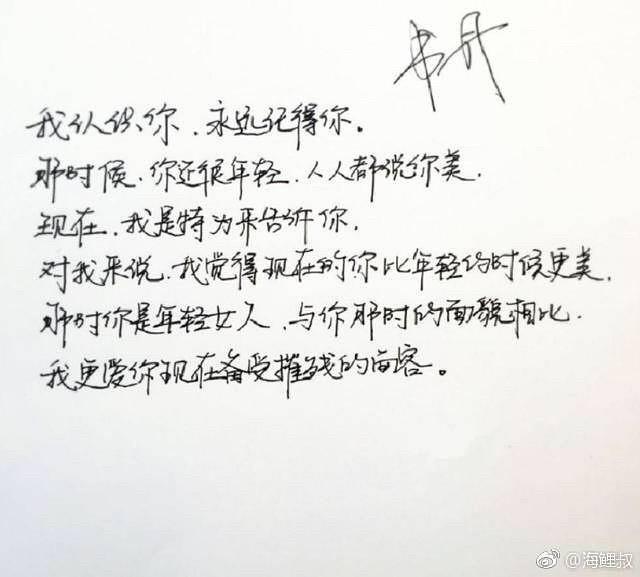 我认识你，永远记得你。
那时候，你还很年轻，人人都说你美，
现在，我是特为来告诉你，
对我来说，我觉得现在的你比年轻的时候更美，
那时你是年轻女人，与你那时的面貌相比，
我更爱你现在备受摧残的面容。
@海鲤叔